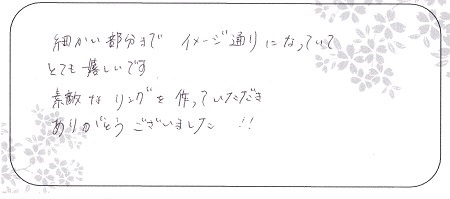 細かい部分まで イメージ通りになっていて
とても嬉しいです
素敵な リングを 作っていただき
ありがとう ございました !!